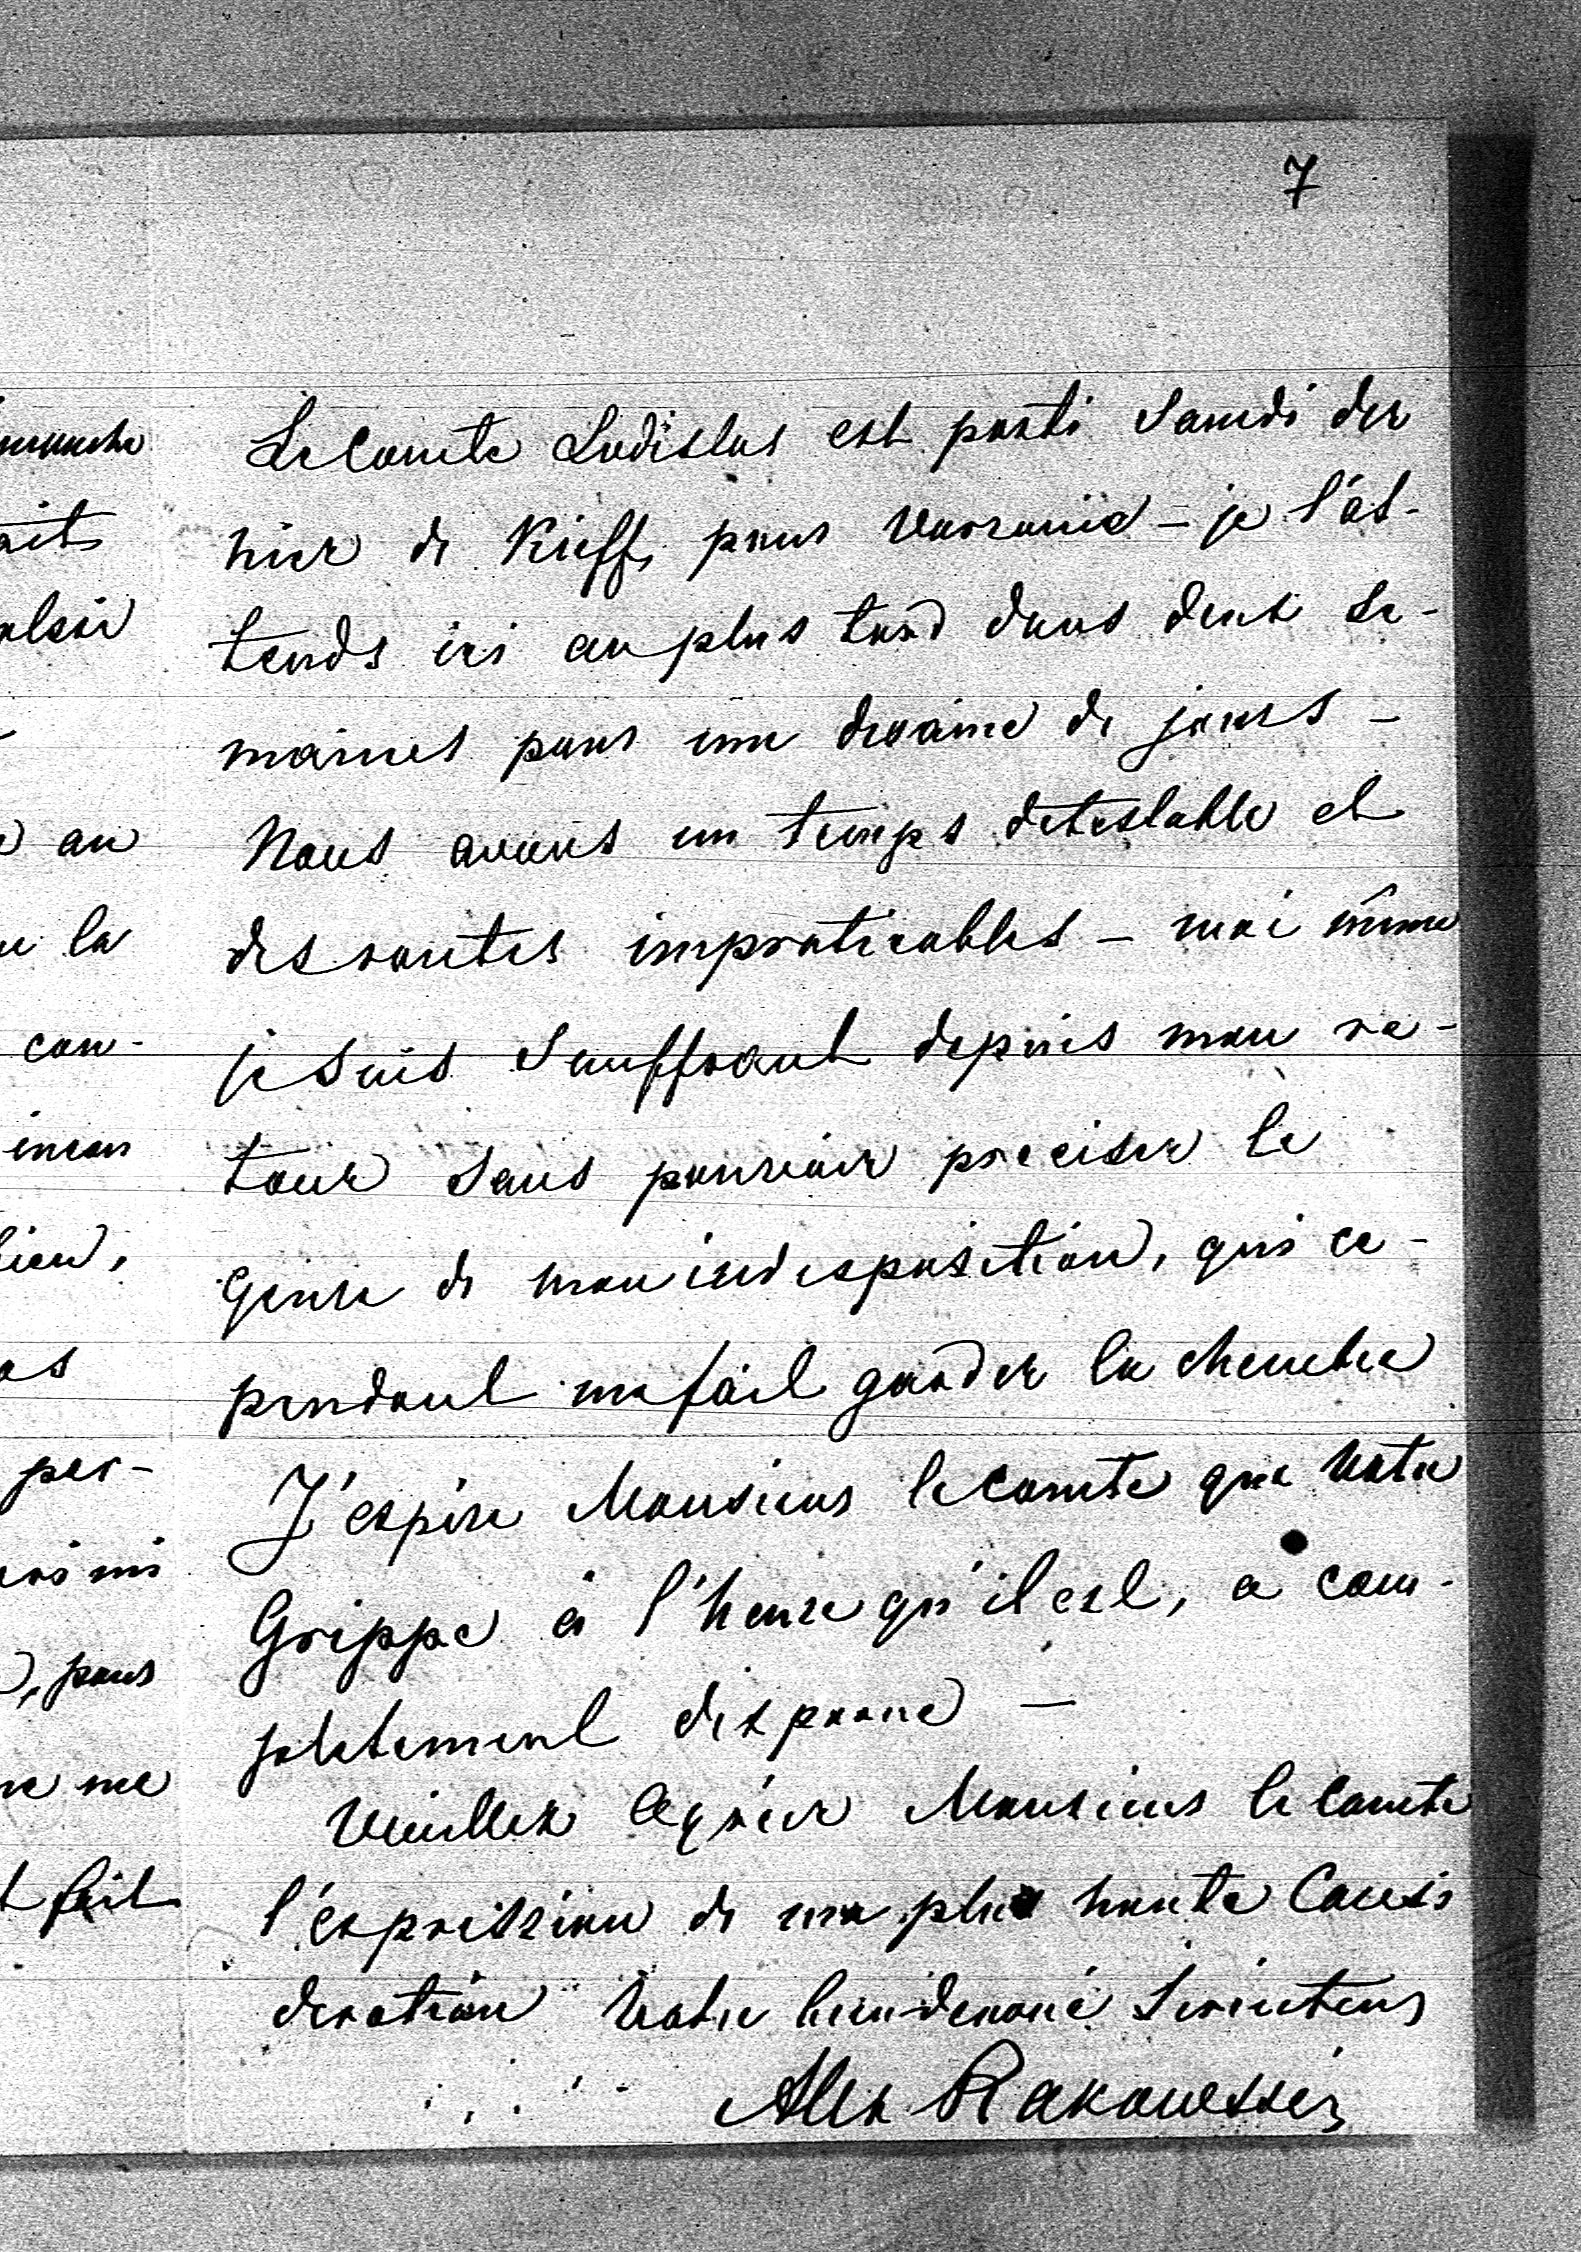 7
Le Comte Ladislas est parti Samedi der
nier de Kieff, pour Varsovie – je l'at-
tends ici au plus tard dans deux se-
maines pour une dixaine de jours –
Nous avons un temps detestable et
des routes impraticables – moi même
je suis Souffrant depuis mon re-
tour sans pouvoir preciser le
genre de mon indisposition, qui ce-
pendant me fait garder la chambre
J'espère Monsieur le Comte que Votre
Grippe à l'heure qu'il est, a com-
pletement disparue –
Veuillez Agréer Monsieur le Comte
l'expression de ma plus haute Consi
deration Votre bien devoué Serviteur
Alex Rakowski
manche
ait
an
la
con-
per-
, pour
me
fait